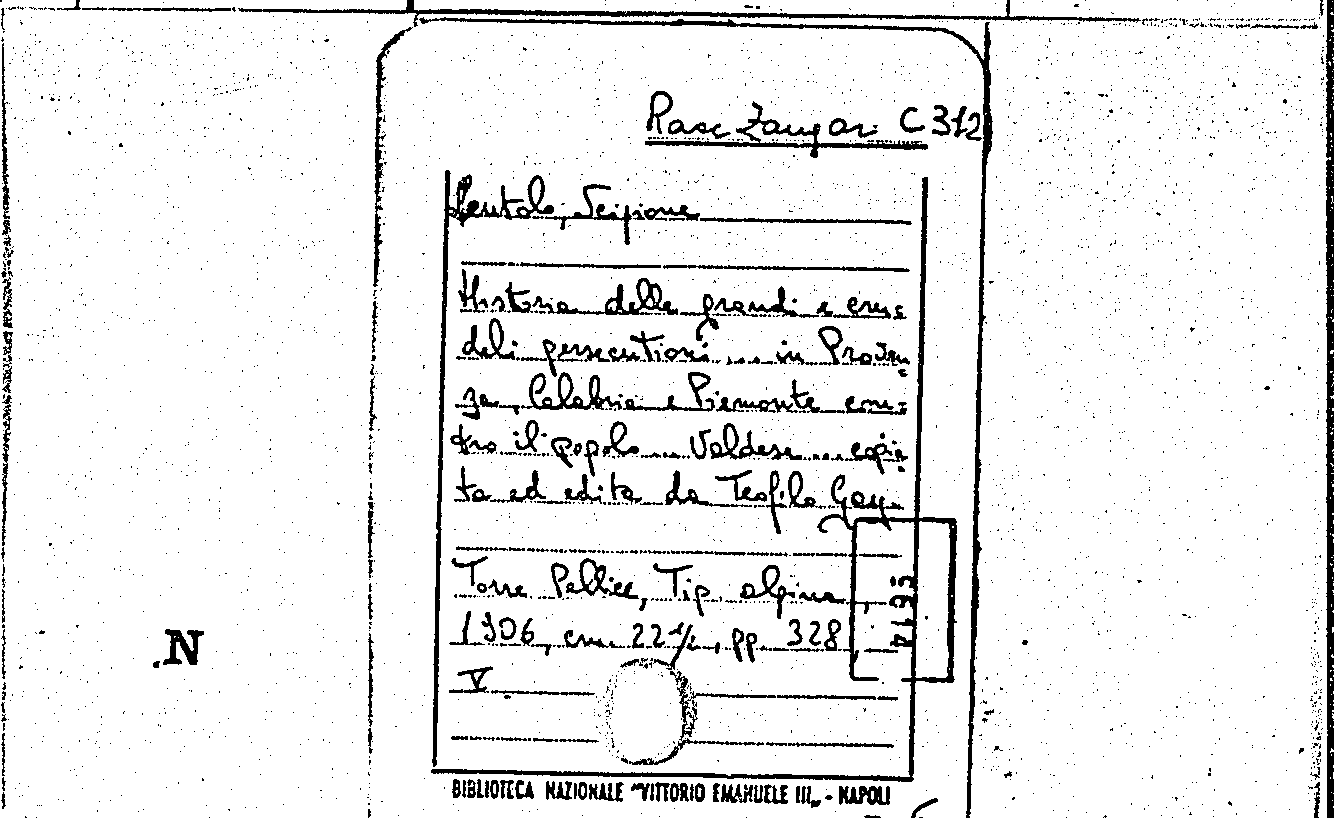 Racc Zangari C 312
Lentolo, Scipione
Historia delle grandi e cru=
deli persecutioni ... in Proven=
za, Calabria e Piemonte con=
tro il popolo ... Valdese ... copia=
ta ed edita da Teofilo Gay.
Torre Pellice, Tip. alpina,
1906, cm. 22½, pp. 328,
V.
N
BIBLIOTECA NAZIONALE "VITTORIO EMANUELE III„ - NAPOLI